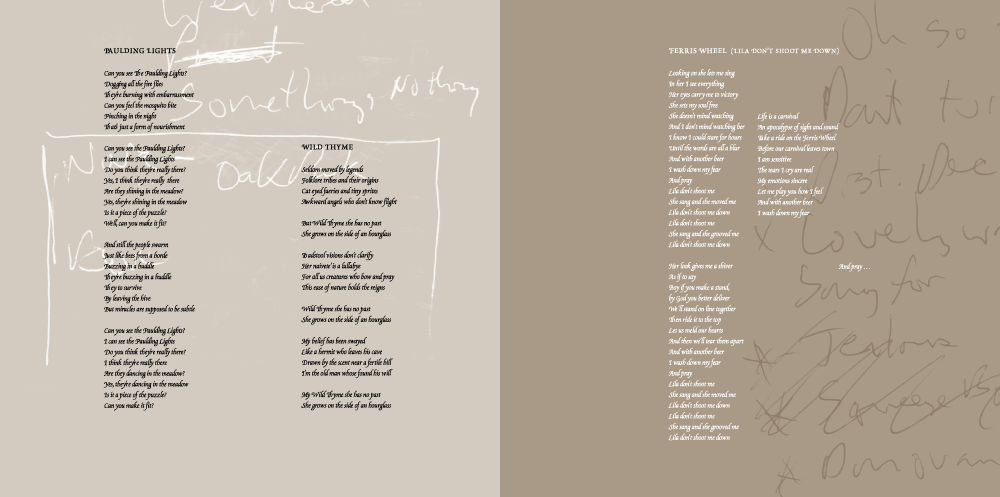 PAULDING LIGHTS
Can you see The Paulding Lights?
Dogging all the fire flies
They're burning with embarrassment
Can you feel the mosquito bite
Pinching in the night
That just a form of nourishment
Can you see the Paulding Lights?
I can see the Paulding Lights
Do you think they're really there?
Yes, I think they're really there
Are they shining in the meadow?
Yes, they're shining in the meadow
Is it a piece of the puzzle?
Well, can you make it fit?
And still the people swarm
Just like bees from a horde
Buzzing in a huddle
They're buzzing in a huddle
They to survive
By leaving the hive
But miracles are supposed to be subtle
Can you see the Paulding Lights?
I can see the Paulding Lights
Do you think they're really there?
I think they're really there
Are they dancing in the meadow?
Yes, they're dancing in the meadow
Is it a piece of the puzzle?
Can you make it fit?
WILD THYME
Seldom moved by legends
Folklore trifles and their origins
Cat eyed faeries and tiny sprites
Awkward angels who don't know flight
But Wild Thyme she has no past
She grows on the side of an hourglass
Toadstool visions don't clarify
Her naivete is a lullabye
For all us creatures who bow and pray
This ease of nature holds the reigns
Wild Thyme she has no past
She grows on the side of an hourglass
My belief has been swayed
Like a hermit who leaves his cave
Drawn by the scent near a fertile hill
I'm the old man whose found his will
My Wild Thyme she has no past
She grows on the side of an hourglass
Something, Nothing
FERRIS WHEEL (LILA DON'T SHOOT ME DOWN)
Looking on she lets me sing
In her I see everything
Her eyes carry me to victory
She sets my soul free
She doesn't mind watching
And I don't mind watching her
I know I could stare for hours
Until the words are all a blur
And with another beer
I wash down my fear
And pray
Lila don't shoot me
She sang and she moved me
Lila don't shoot me down
Lila don't shoot me
She sang and she grooved me
Lila don't shoot me down
Her look gives me a shiver
As if to say
Boy if you make a stand,
by God you better deliver
We'll stand on line together
Then ride it to the top
Let us meld our hearts
And then we'll tear them apart
And with another beer
I wash down my fear
And pray
Lila don't shoot me
She sang and she moved me
Lila don't shoot me down
Lila don't shoot me
She sang and she grooved me
Lila don't shoot me down
Life is a carnival
An apocalypse of sight and sound
Take a ride on the Ferris Wheel
Before our carnival leaves town
I am sensitive
The tears I cry are real
My emotions sincere
Let me play you how I feel
And with another beer
I wash down my fear
And pray ...
Oh so
Song for
Donovan